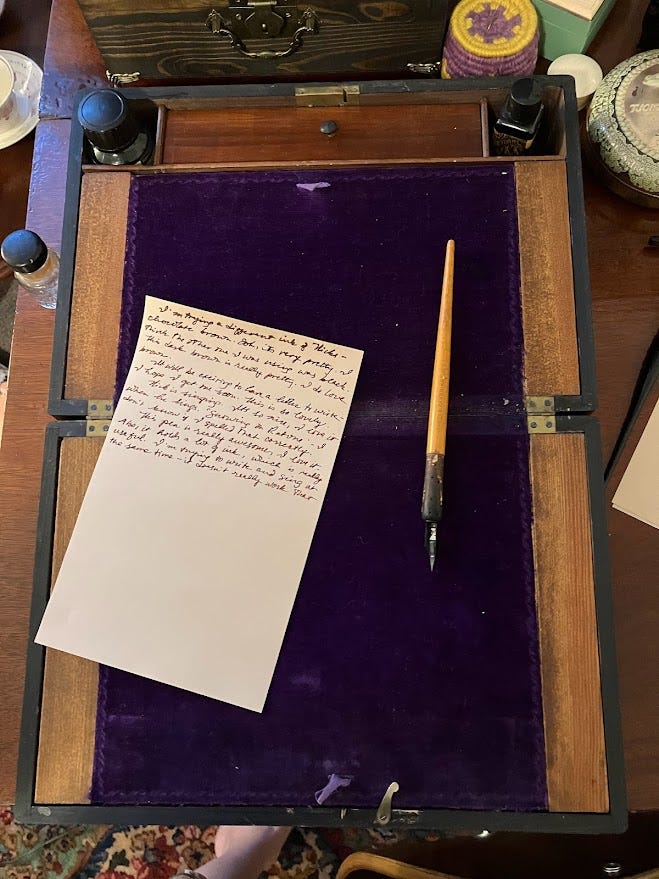 I'm trying a different ink of Nicks -
chocolate brown. Ooh, it's very pretty. I
think the other one I was using was black.
This dark brown is really pretty. I do love
brown.
It'll be exciting to have a letter to write -
I hope I get one soon. This is so lovely.
Nick is singing. It's so nice, I love it
when he sings. Spancing on Rations. I
don't know if I spelled that correctly.
This pen is really awesome, I love it.
Also, it holds a lot of ink, which is really
useful. I'm trying to write and sing at
the same time - it doesn't really work that